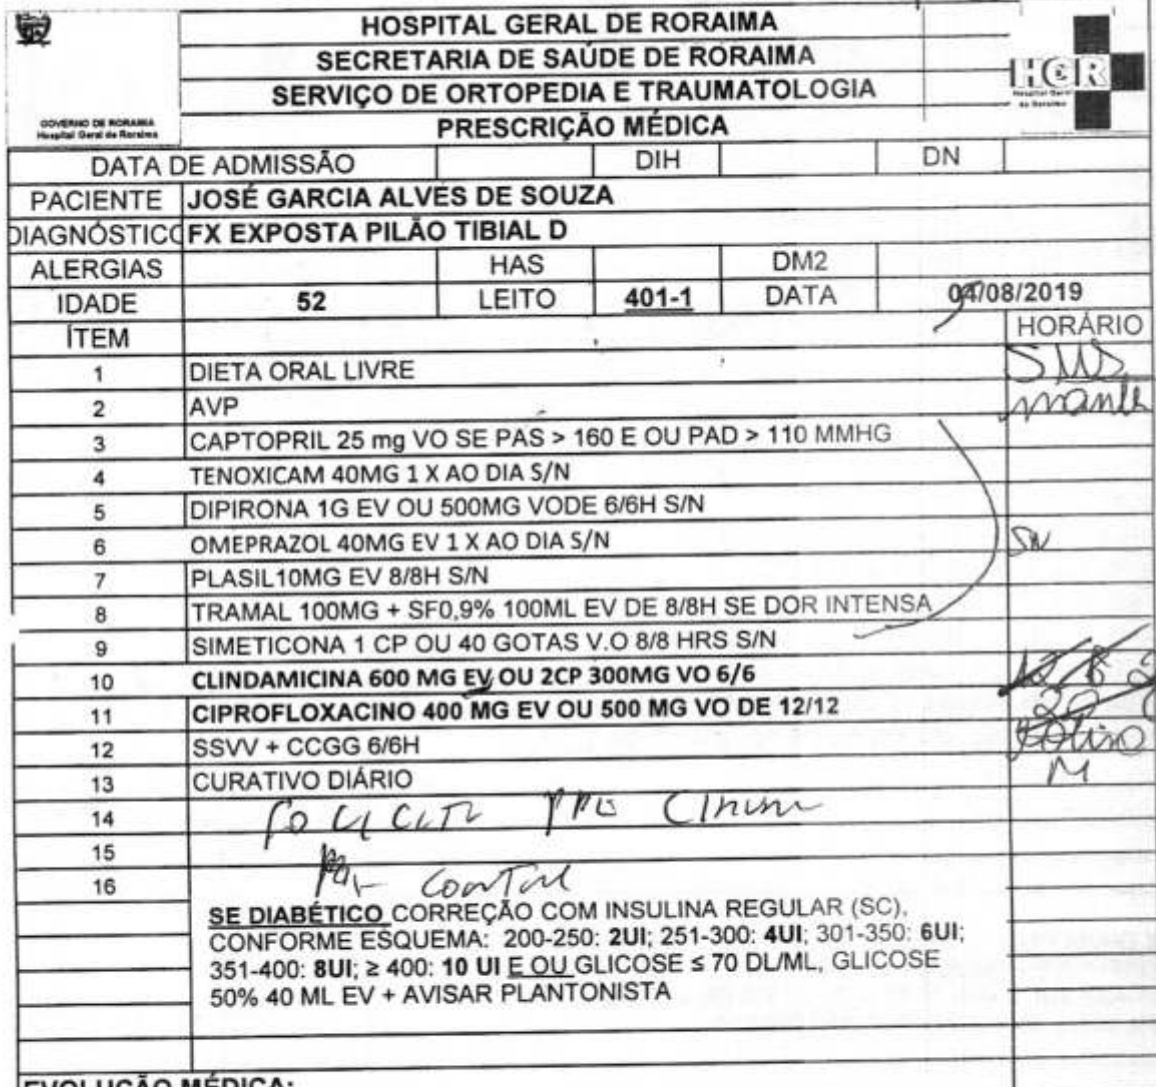 HOSPITAL GERAL DE RORAIMA
SECRETARIA DE SAÚDE DE RORAIMA
SERVIÇO DE ORTOPEDIA E TRAUMATOLOGIA
PRESCRIÇÃO MÉDICA
GOVERNO DE RORAIMA
Hospital Geral de Roraima
HGR
Hospital Geral
de Roraima
DATA DE ADMISSÃO DIH DN
PACIENTE JOSÉ GARCIA ALVES DE SOUZA
DIAGNÓSTICO FX EXPOSTA PILÃO TIBIAL D
ALERGIAS HAS DM2
IDADE 52 LEITO 401-1 DATA /08/2019
ÍTEM HORÁRIO
1 DIETA ORAL LIVRE SND
2 AVP
3 CAPTOPRIL 25 mg VO SE PAS > 160 E OU PAD > 110 MMHG
4 TENOXICAM 40MG 1 X AO DIA S/N
5 DIPIRONA 1G EV OU 500MG VODE 6/6H S/N
6 OMEPRAZOL 40MG EV 1 X AO DIA S/N SN
7 PLASIL10MG EV 8/8H S/N
8 TRAMAL 100MG + SF0,9% 100ML EV DE 8/8H SE DOR INTENSA
9 SIMETICONA 1 CP OU 40 GOTAS V.O 8/8 HRS S/N
10 CLINDAMICINA 600 MG EV OU 2CP 300MG VO 6/6
11 CIPROFLOXACINO 400 MG EV OU 500 MG VO DE 12/12
12 SSVV + CCGG 6/6H
13 CURATIVO DIÁRIO M
14
15
16
SE DIABÉTICO CORREÇÃO COM INSULINA REGULAR (SC),
CONFORME ESQUEMA: 200-250: 2UI; 251-300: 4UI; 301-350: 6UI;
351-400: 8UI; ≥ 400: 10 UI E OU GLICOSE ≤ 70 DL/ML, GLICOSE
50% 40 ML EV + AVISAR PLANTONISTA
EVOLUÇÃO MÉDICA: